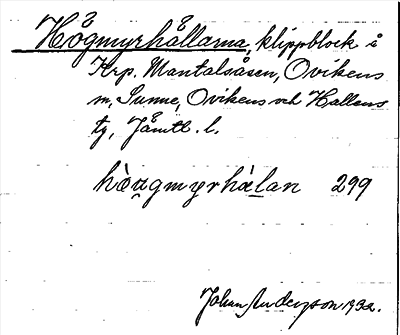 Högmyrhållarna, klippblock i
Krp. Mantalsåsen, Ovikens
m, Sunne, Ovikens och Hallens
tg, Jämtl. l.
hö̀u̯gmyrhàḷan 299
Johan Anderson 1932.